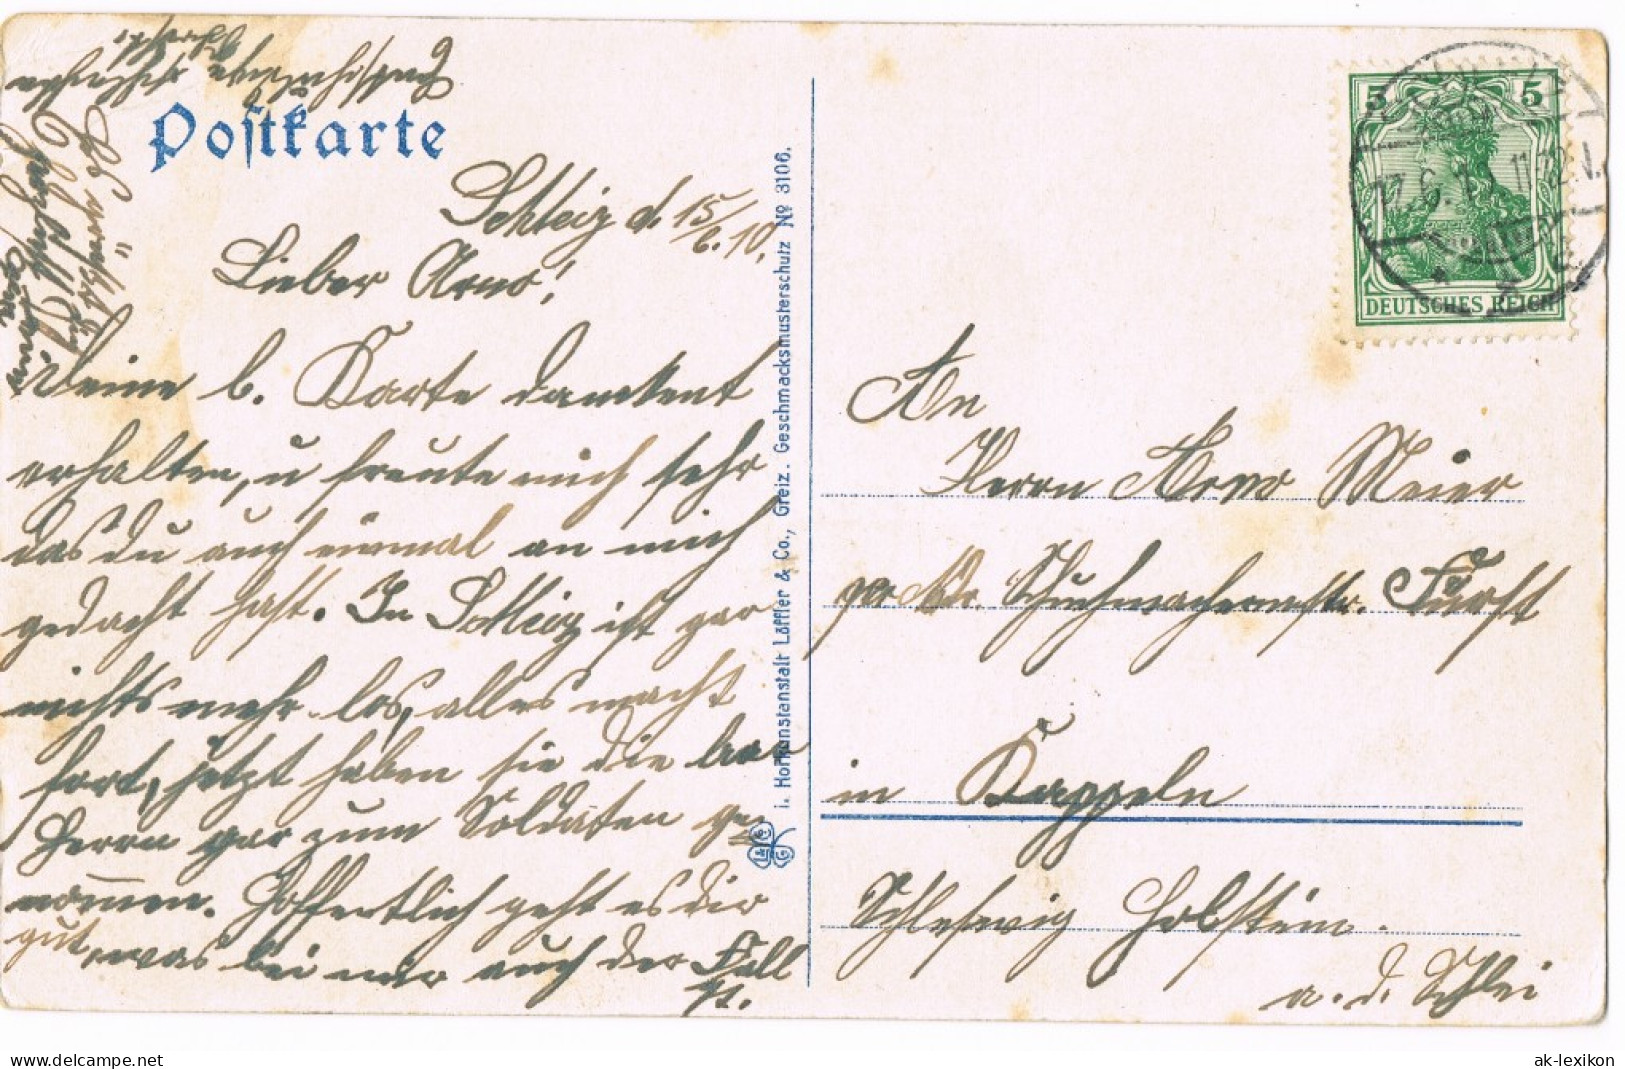 Postkarte
Schleiz d. 15/6. 10.
Lieber Arno!
Deine l. Karte dankent
erhalten, u freute mich sehr
das du auch einmal an mich
gedacht hast. In Schleiz ist gar
nichts mehr los, alles macht
fort, jetzt haben sie die
Herrn gar zum Soldaten ge-
nommen. Hoffentlich geht es dir
gut, was bei mir auch der Fall
ist.
i. Hofkunstanstalt Löffler & Co., Greiz. Geschmacksmusterschutz No 3106.
5 5
DEUTSCHES REICH
An
Herrn Arno Meier
Adr. Schuhmachermstr. Fürst
in Kappeln
Schleswig Holstein.
a. d. Schlei
ak-lexikon